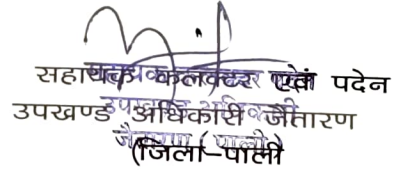 सहायक कलक्टर एवं पदेन
उपखण्ड अधिकारी जैतारण
(जिला-पाली